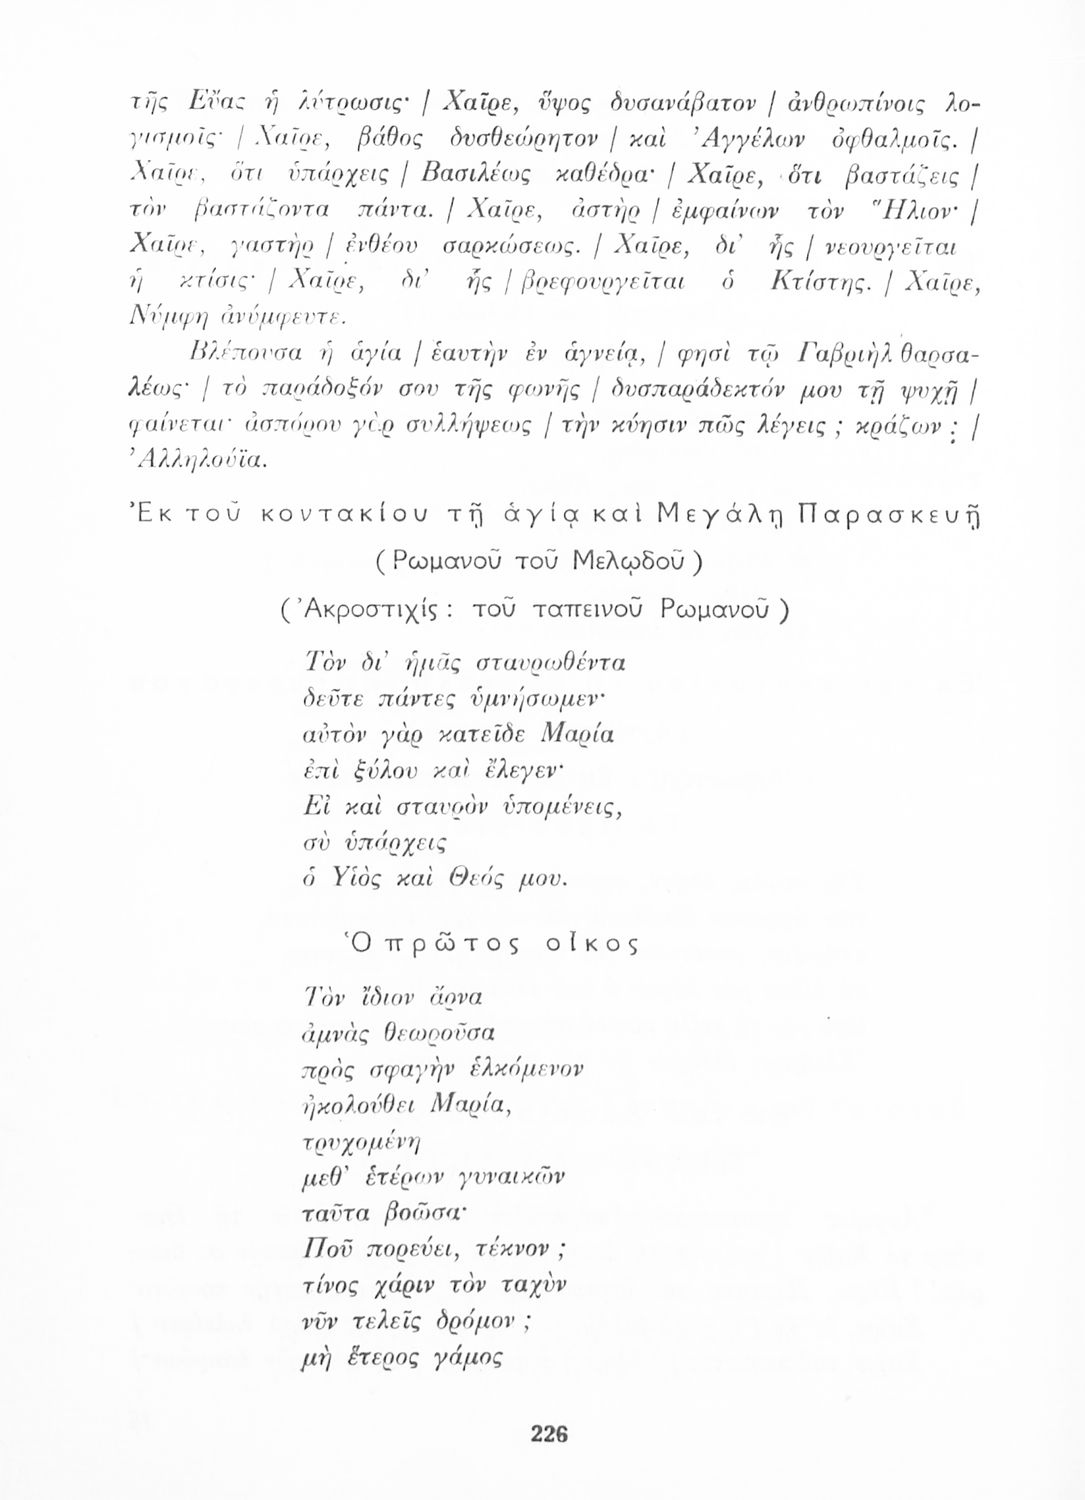 τῆς Εὔας ἡ λύτρωσις· | Χαῖρε, ὕψος δυσανάβατον | ἀνθρωπίνοις λο-
γισμοῖς· | Χαῖρε, βάθος δυσθεώρητον | καὶ Ἀγγέλων ὀφθαλμοῖς. |
Χαῖρε, ὅτι ὑπάρχεις | Βασιλέως καθέδρα· | Χαῖρε, ὅτι βαστάζεις |
τὸν βαστάζοντα πάντα. | Χαῖρε, ἀστὴρ | ἐμφαίνων τὸν Ἥλιον· |
Χαῖρε, γαστὴρ | ἐνθέου σαρκώσεως. | Χαῖρε, δι' ἧς | νεουργεῖται
ἡ κτίσις· | Χαῖρε, δι' ἧς | βρεφουργεῖται ὁ Κτίστης. | Χαῖρε,
Νύμφη ἀνύμφευτε.
Βλέπουσα ἡ ἁγία | ἑαυτὴν ἐν ἁγνείᾳ, | φησὶ τῷ Γαβριὴλ θαρσα-
λέως· | τὸ παράδοξόν σου τῆς φωνῆς | δυσπαράδεκτόν μου τῇ ψυχῇ |
φαίνεται· ἀσπόρου γὰρ συλλήψεως | τὴν κύησιν πῶς λέγεις ; κράζων ; |
Ἀλληλούϊα.
Ἐκ τοῦ κοντακίου τῇ ἁγίᾳ καὶ Μεγάλῃ Παρασκευῇ
( Ρωμανοῦ τοῦ Μελῳδοῦ )
( Ἀκροστιχίς : τοῦ ταπεινοῦ Ρωμανοῦ )
Τὸν δι' ἡμᾶς σταυρωθέντα
δεῦτε πάντες ὑμνήσωμεν·
αὐτὸν γὰρ κατεῖδε Μαρία
ἐπὶ ξύλου καὶ ἔλεγεν·
Εἰ καὶ σταυρὸν ὑπομένεις,
σὺ ὑπάρχεις
ὁ Υἱὸς καὶ Θεός μου.
Ὁ πρῶτος οἶκος
Τὸν ἴδιον ἄρνα
ἀμνὰς θεωροῦσα
πρὸς σφαγὴν ἑλκόμενον
ἠκολούθει Μαρία,
τρυχομένη
μεθ' ἑτέρων γυναικῶν
ταῦτα βοῶσα·
Ποῦ πορεύει, τέκνον ;
τίνος χάριν τὸν ταχὺν
νῦν τελεῖς δρόμον ;
μὴ ἕτερος γάμος
226